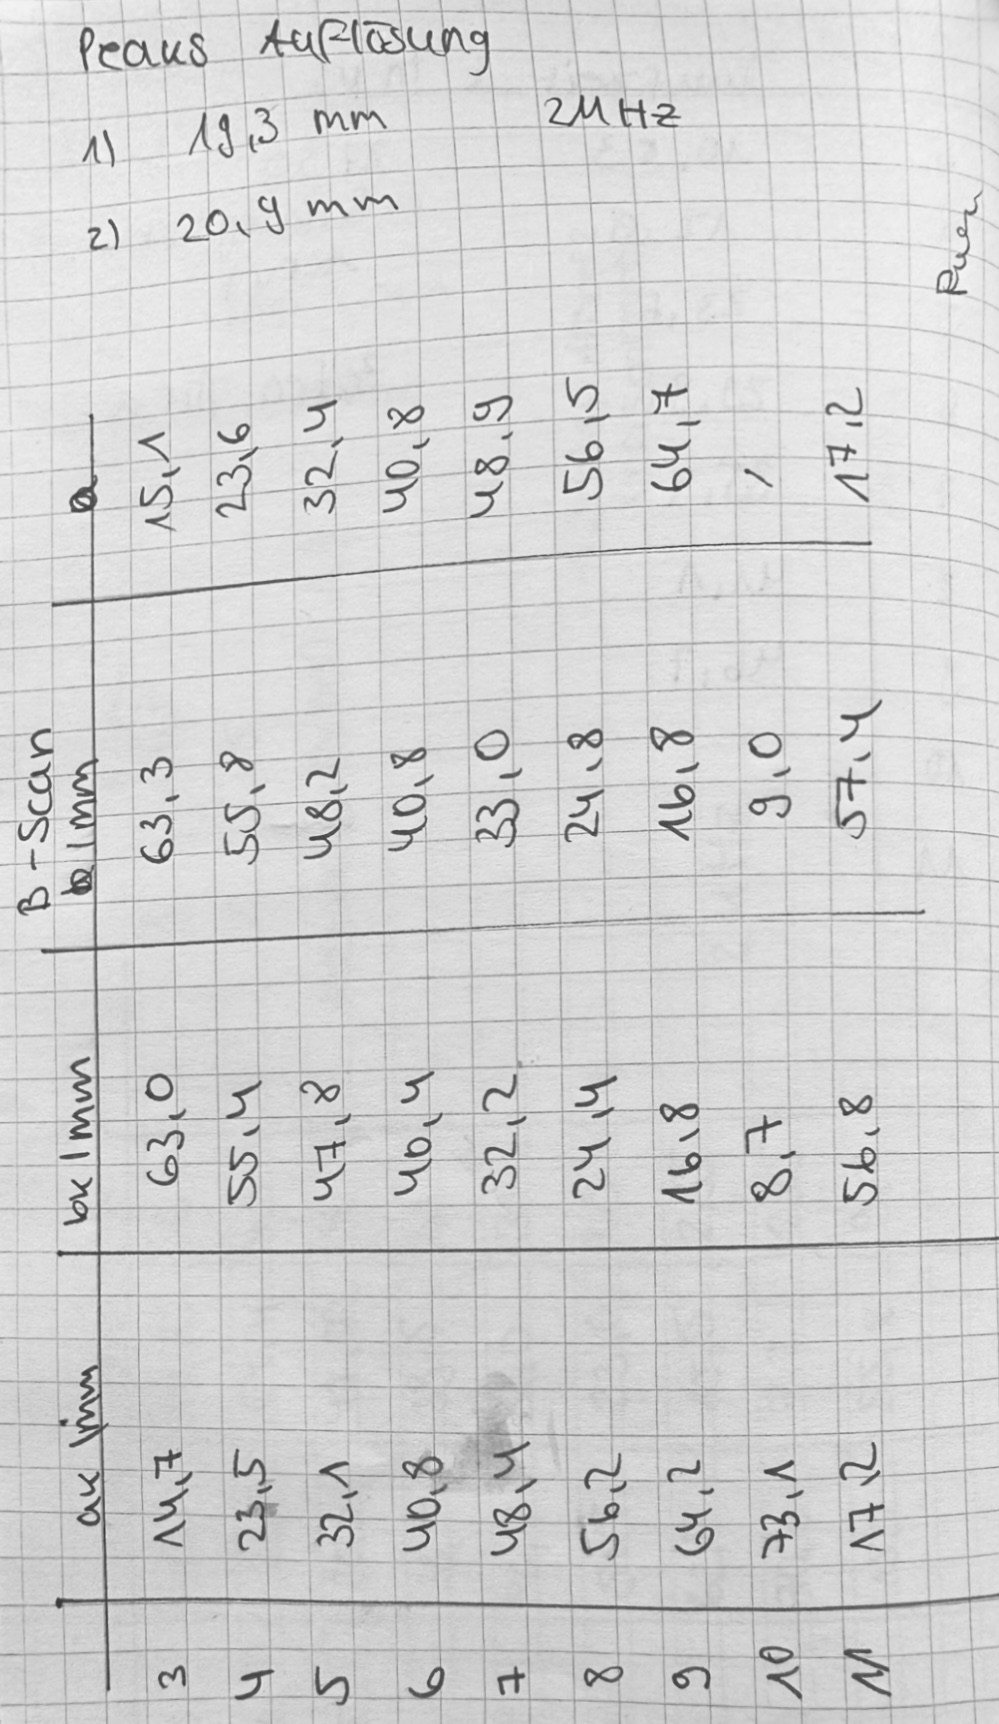 Peaks Auflösung
1) 19,3 mm 2MHz
2) 20,9 mm
B-Scan
ak/mm bk/mm b/mm a
3 14,7 63,0 63,3 15,1
4 23,5 55,4 55,8 23,6
5 32,1 47,8 48,2 32,4
6 40,8 40,4 40,8 40,8
7 48,4 32,2 33,0 48,9
8 56,2 24,4 24,8 56,5
9 64,2 16,8 16,8 64,7
10 73,1 8,7 9,0 /
11 17,2 56,8 57,4 17,2